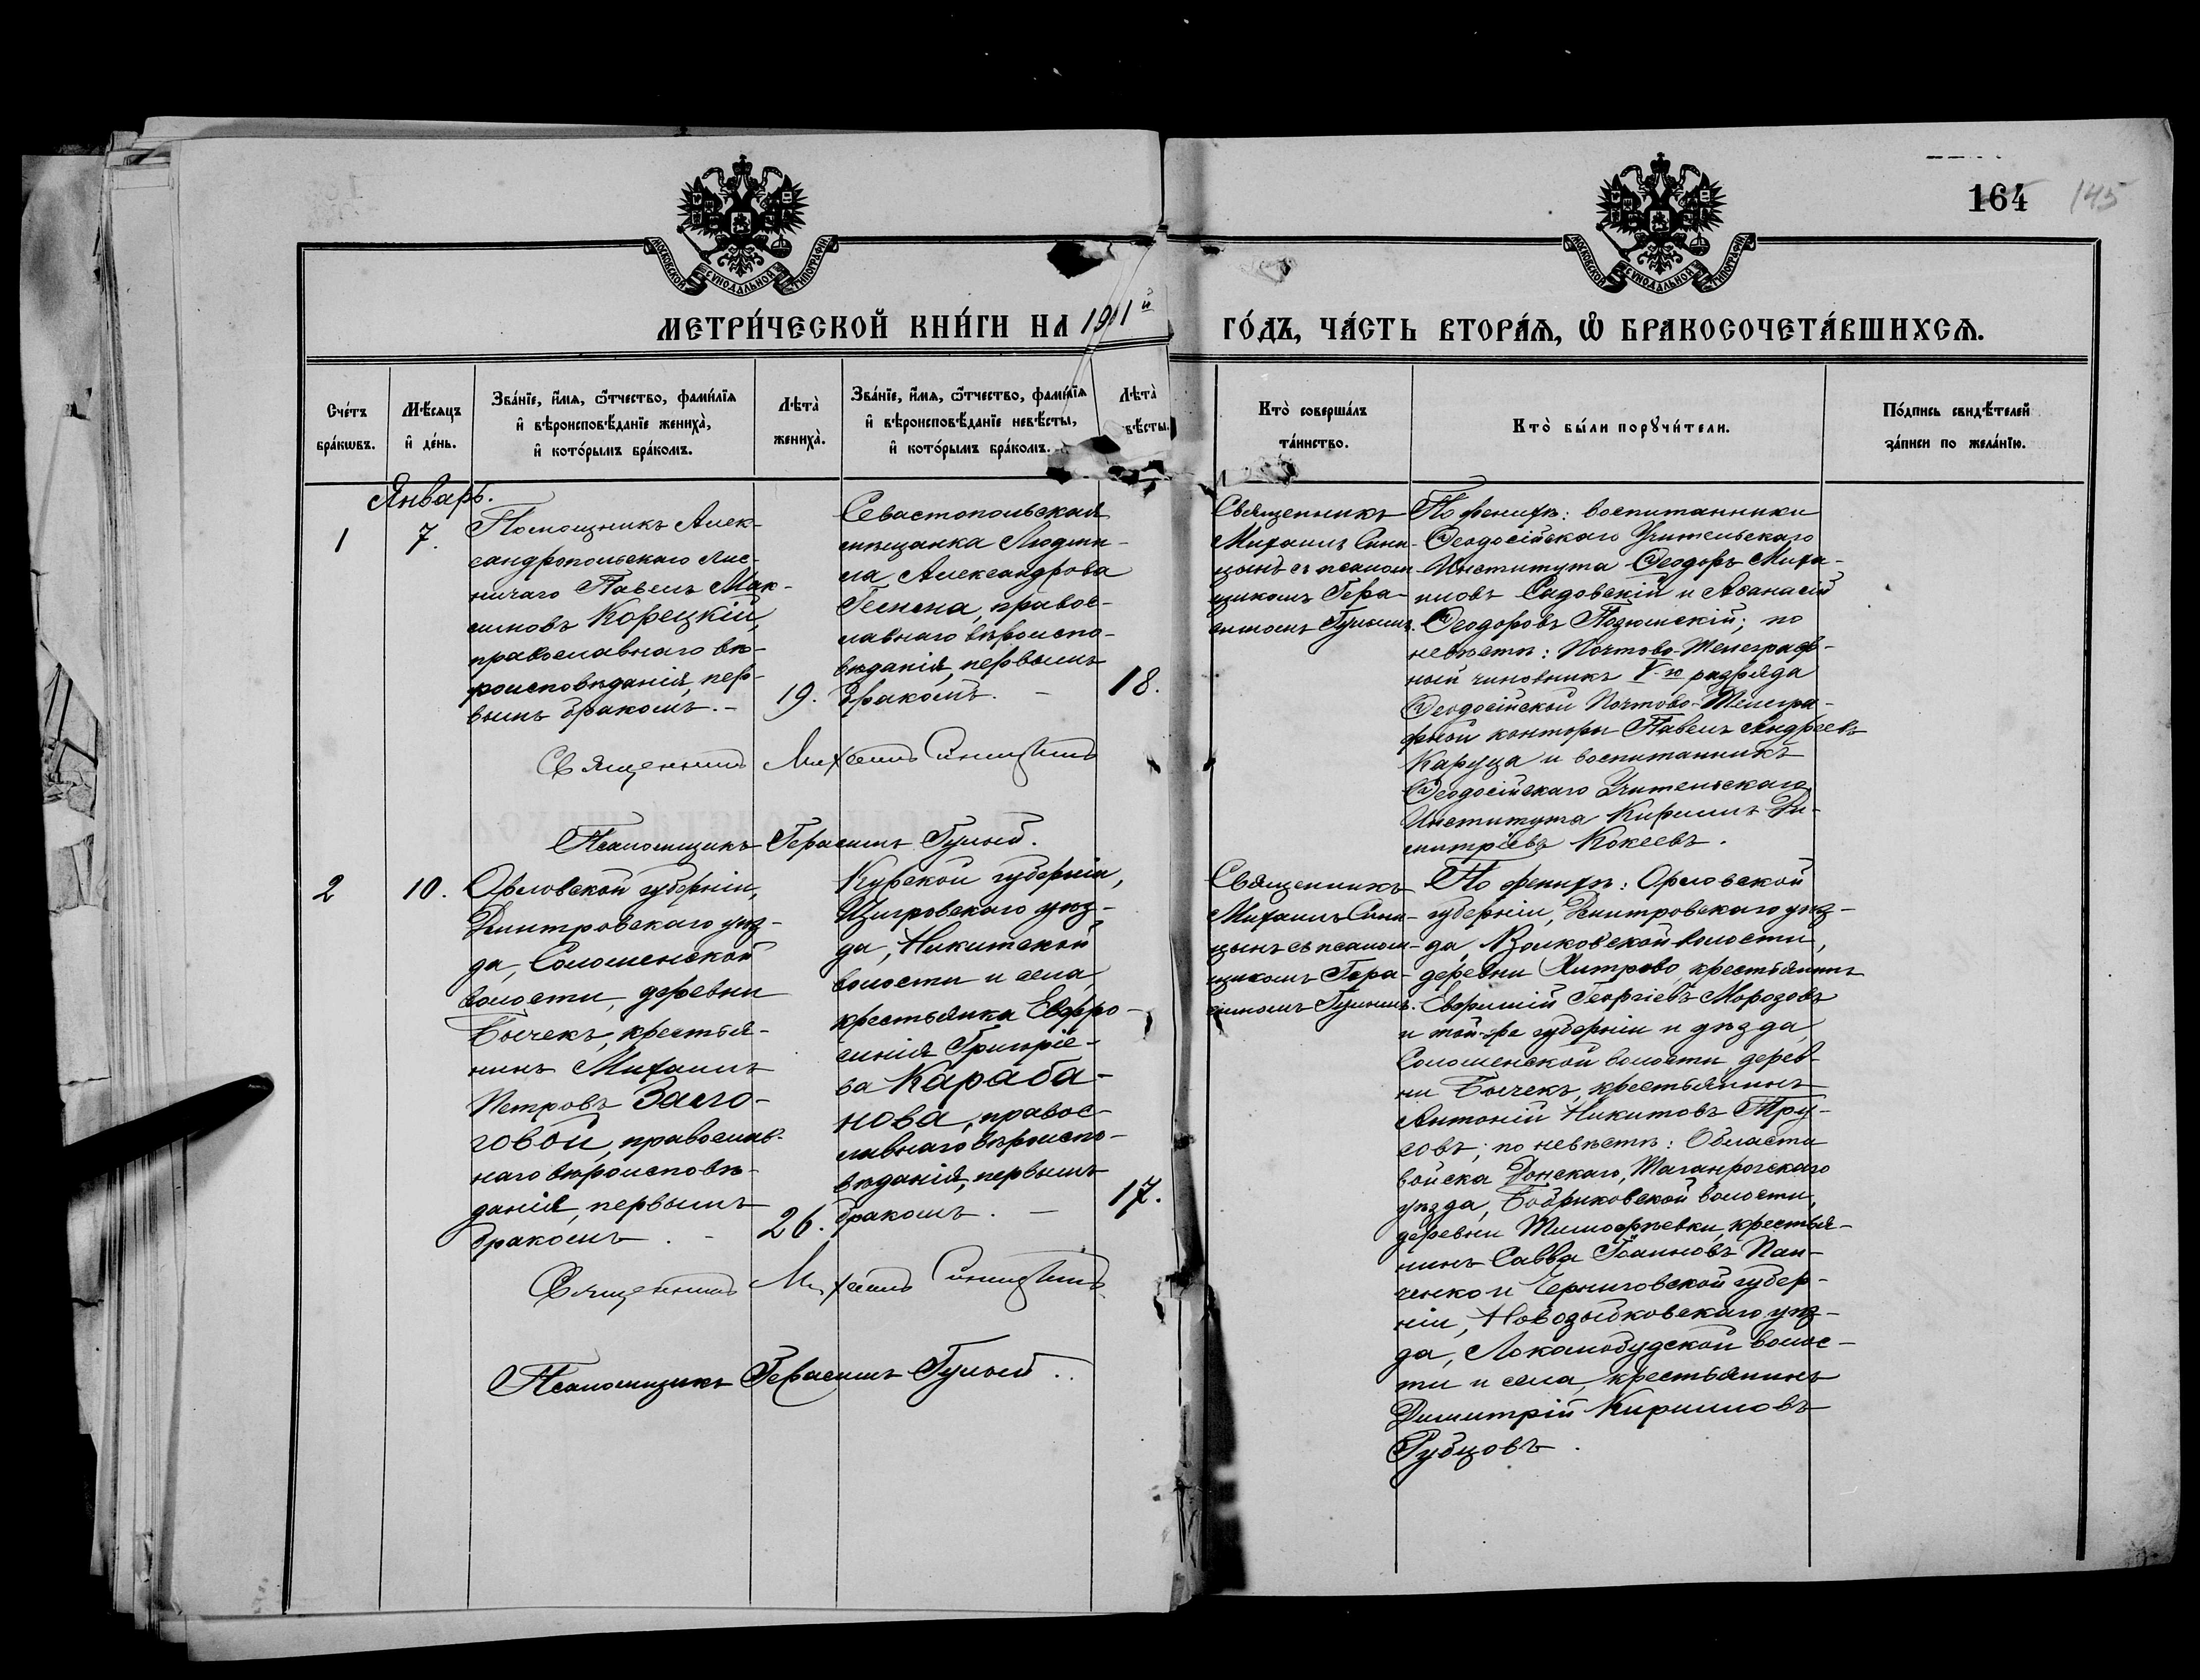 МОСКОВСКОЙ СУНОДАЛЬНОЙ ТИПОГРАФІИ
МОСКОВСКОЙ СУНОДАЛЬНОЙ ТИПОГРАФІИ
164 145
МЕТРИ́ЧЕСКОЙ КНИ́ГИ НА 1911й ГО́ДЪ, ЧА́СТЬ ВТОРА́Я, Ѡ БРАКОСОЧЕТА́ВШИХСѦ.
Сче́тъ
бра́кѡвъ.
Мѣ́сяцъ
и҆ де́нь.
Зва́нїе, и҆́мя, ѻ҆́тчество, фами́лїя
и҆ вѣроисповѣ́данїе жениха̀,
и҆ кото́рымъ бра́комъ.
Лѣта̀
жениха̀.
Зва́нїе, и҆́мя, ѻ҆́тчество, фами́лїя
и҆ вѣроисповѣ́данїе невѣ́сты,
и҆ кото́рымъ бра́комъ.
Лѣта̀
вѣ́сты.
Кто̀ соверша́лъ
та́инство.
Кто̀ бы́ли порꙋчи́тели.
По́дпись свидѣ́телей
за́писи по жела́нїю.
Январь.
1
7.
Помощникъ Алек-
сандропольскаго лѣс-
ничаго Павелъ Мак-
симовъ Корецкій,
православнаго вѣ-
роисповѣданія, пер-
вымъ бракомъ. -
19.
Севастопольская
мѣщанка Людми-
ла Александрова
правос-
лавнаго вѣроиспо-
вѣданія, первымъ
бракомъ. -
18.
Священникъ
Михаилъ Сини-
цынъ съ псалом-
щикомъ Гера-
симомъ Гулымъ.
По женихѣ: воспитанники
Ѳеодосійскаго Учительскаго
Института Ѳеодоръ Миха-
иловъ Садовскій и Аѳанасій
Ѳеодоровъ Подолинскій; по
невѣстѣ: Почтово-Телеграф-
ный чиновникъ V-го разряда
Ѳеодосійской Почтово-Телегра-
фной конторы Павелъ Андреевъ
Каруца и воспитанникъ
Ѳеодосійскаго Учительскаго
Института Кириллъ Ди-
митріевъ Кокеевъ.
Священникъ Михаилъ Синицынъ
Псаломщикъ Герасимъ Гулый.
2
10.
Орловской губерніи,
Дмитровскаго уѣз-
да, Соломенской
волости, деревни
Бычекъ, крестья-
нинъ Михаилъ
Петровъ
говой, православ-
наго вѣроисповѣ-
данія, первымъ
бракомъ. -
26.
Курской губерніи,
Щигровскаго уѣз-
да, Никитской
волости и села,
крестьянка Евфро-
синія Григоріе-
ва Караба-
нова, правос-
лавнаго вѣроиспо-
вѣданія, первымъ
бракомъ. -
17.
Священникъ
Михаилъ Сини-
цынъ съ псалом-
щикомъ Гера-
симомъ Гулымъ.
По женихѣ: Орловской
губерніи, Дмитровскаго уѣз-
да, Волковской волости,
деревни Хитрово, крестьянинъ
Евфимій Георгіевъ Морозовъ
и той-же губерніи и уѣзда,
Соломенской волости дерев-
ни Бычекъ, крестьянинъ
Антоній Никитовъ Тру-
совъ; по невѣстѣ: Области
войска Донскаго, Таганрогскаго
уѣзда, Бобриковской волости,
деревни Тимофѣевки, крестья-
нинъ Савва Іоанновъ Пан-
ченко и Черниговской губер-
ніи, Новозыбковскаго уѣз-
да, Лакомобудской волос-
ти и села, крестьянинъ
Димитрій Кирилловъ
Рубцовъ.
Священникъ Михаилъ Синицынъ
Псаломщикъ Герасимъ Гулый.